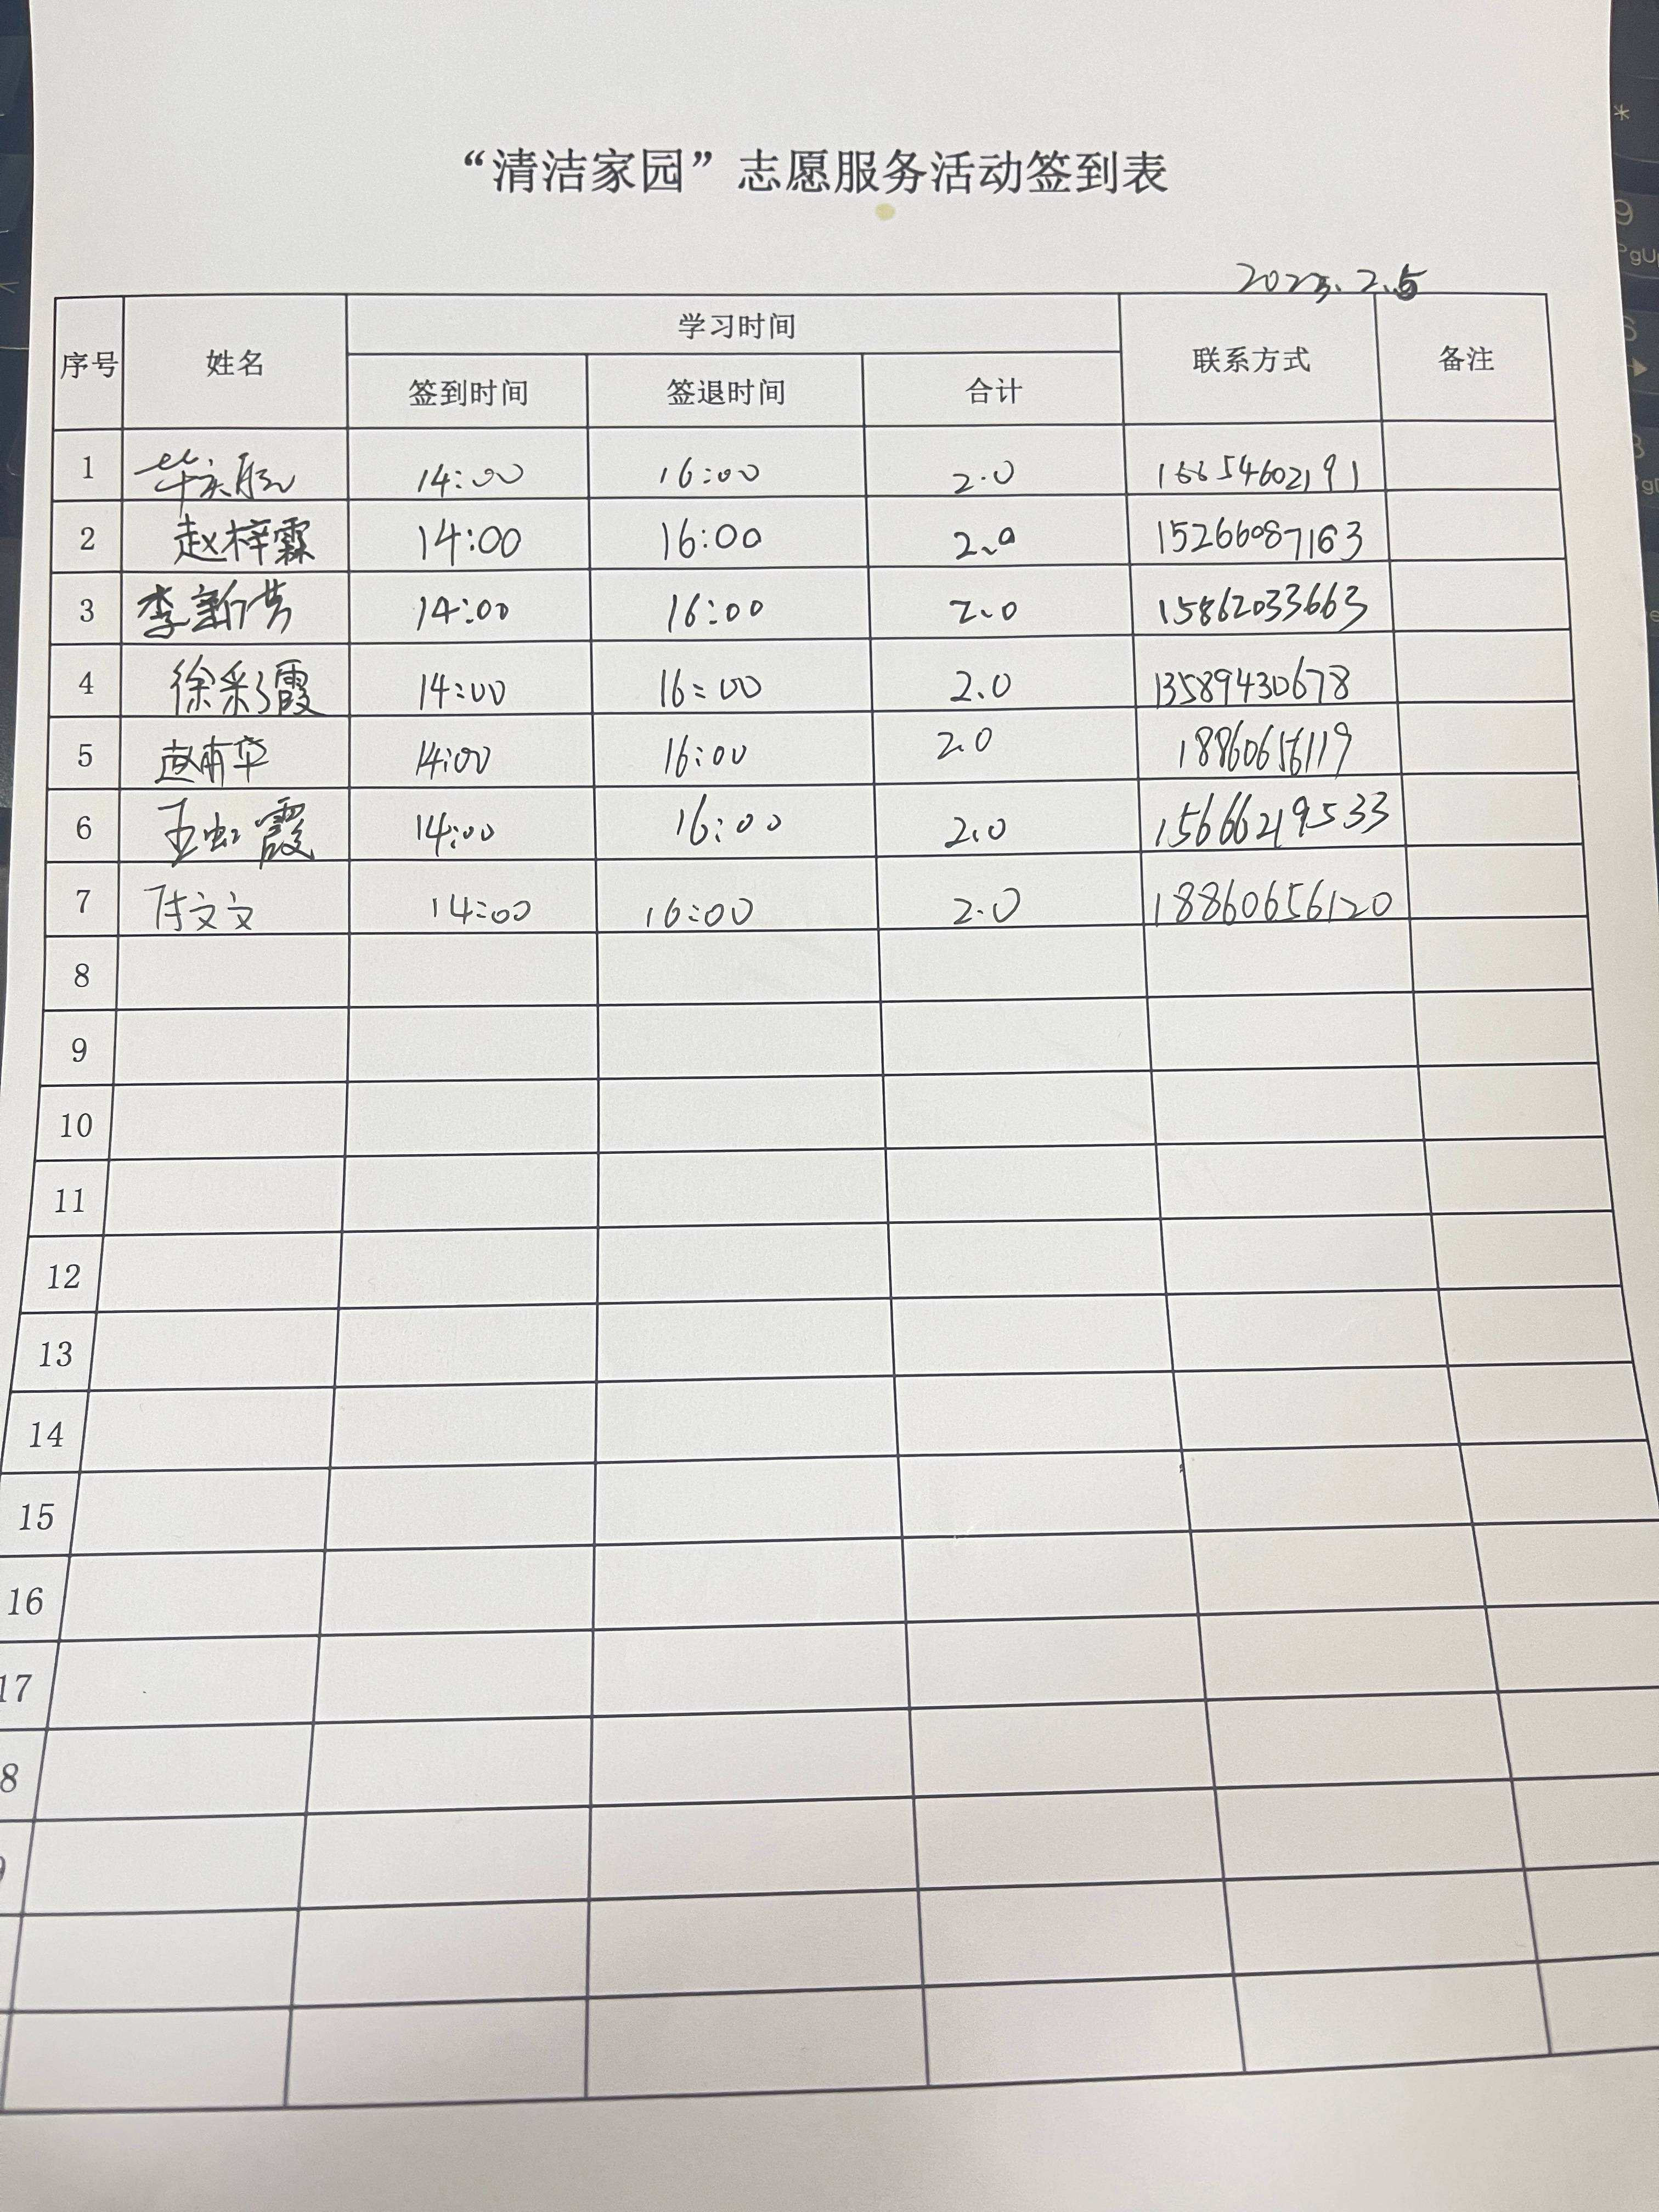 “清洁家园”志愿服务活动签到表
2023.2.5
序号 姓名 学习时间 联系方式 备注
签到时间 签退时间 合计
1 14:00 16:00 2.0 16654602191
2 赵梓霖 14:00 16:00 2.0 15266087163
3 李新芳 14:00 16:00 2.0 15862033663
4 徐彩霞 14:00 16:00 2.0 13589430678
5 赵甫华 14:00 16:00 2.0 18860656119
6 王虹霞 14:00 16:00 2.0 15666219533
7 陈文文 14:00 16:00 2.0 18860656120
8
9
10
11
12
13
14
15
16
17
8
9